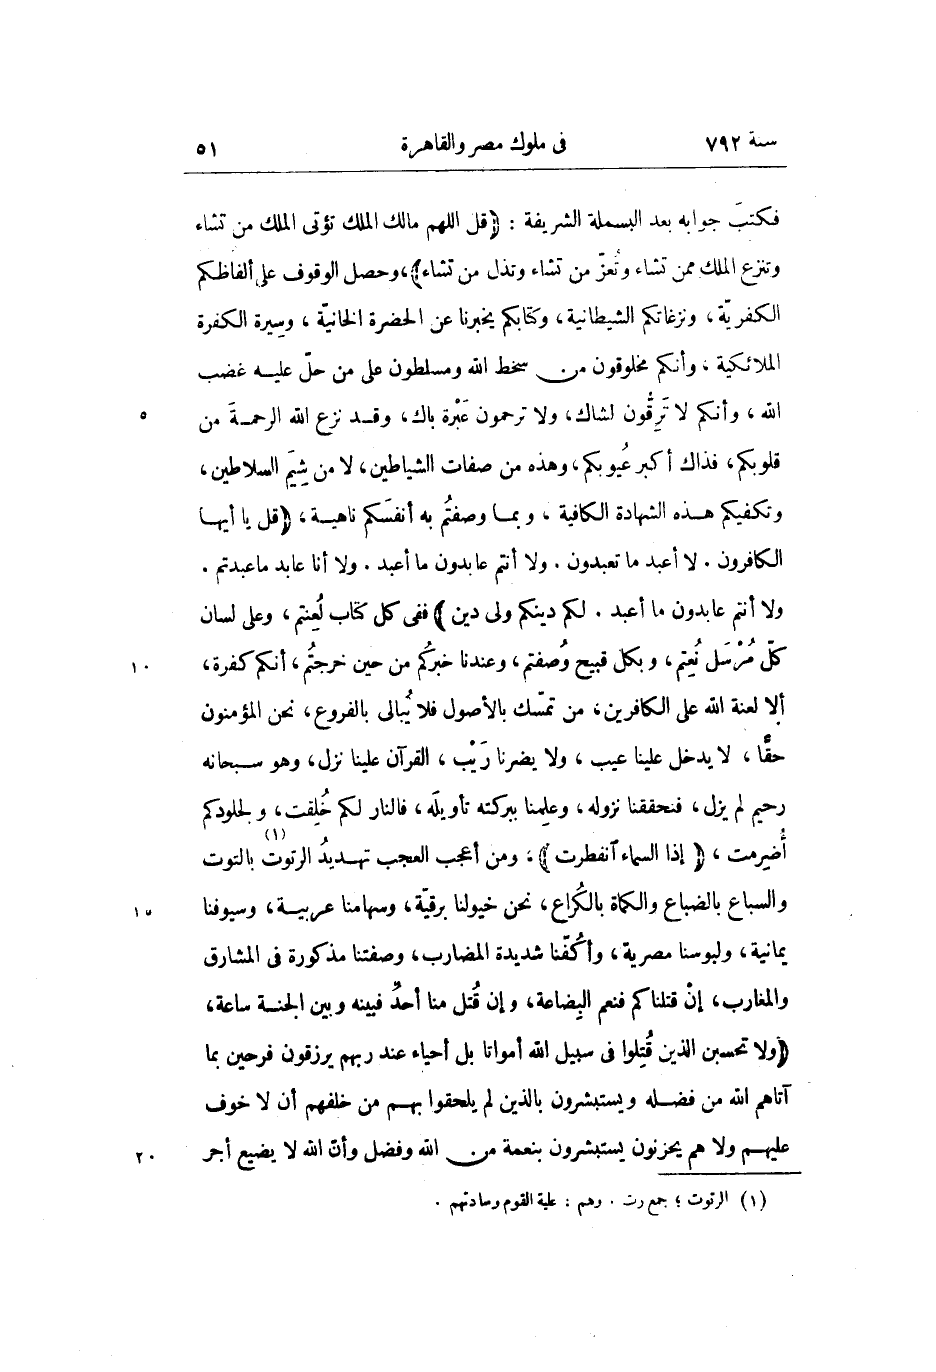 سنة ٧٩٢ فى ملوك مصر والقاهرة ٥١
فكتبَ جوابه بعد البسملة الشريفة : ﴿قل اللهم مالك الملك تؤتى الملك من تشاء
وتنزع الملك ممن تشاء وتُعزّ من تشاء وتذل من تشاء﴾، وحصل الوقوف على ألفاظكم
الكفريّة ، ونزغاتكم الشيطانية ، وكتابكم يخبرنا عن الحضرة الخانيّة ، وسِيرة الكفرة
الملائكية ، وأنكم مخلوقون من سخط الله ومسلطون على من حلّ عليه غضب
الله ، وأنكم لا تَرِقُّون لشاك، ولا ترحمون عَبْرة باك، وقد نزع الله الرحمةَ من ٥
قلوبكم، فذاك أكبر عُيوبكم، وهذه من صفات الشياطين، لا من شِيَم السلاطين،
وتكفيكم هذه الشهادة الكافية ، وبما وصفتُم به أنفسَكم ناهية، ﴿قل يا أيها
الكافرون . لا أعبد ما تعبدون . ولا أنتم عابدون ما أعبد . ولا أنا عابد ماعبدتم .
ولا أنتم عابدون ما أعبد . لكم دينكم ولى دين ﴾ ففى كل كتاب لُعِنتم، وعلى لسان
كلّ مُرْسَل نُعِتم، وبكل قبيح وُصفتم، وعندنا خبرُكم من حين خرجتُم، أنكم كفرة، ١٠
ألا لعنة الله على الكافرين، من تمسّك بالأصول فلا يُبالى بالفروع، نحن المؤمنون
حقًّا، لا يدخل علينا عيب ، ولا يضرنا رَيْب ، القرآن علينا نزل، وهو سبحانه
رحيم لم يزل، فتحققنا نزوله، وعلِمنا ببركته تأويلَه، فالنار لكم خُلِقت، ولجلودكم
أُضرِمت ، ﴿ إذا السماء آنفطرت ﴾؛ ومن أعجب العجب تهديدُ الرتوت(١) بالتوت
والسباع بالضباع والكماة بالكُراع، نحن خيولنا برقيّة، وسهامنا عربية، وسيوفنا ١٥
يمانية، ولبوسنا مصرية، وأكُفّنا شديدة المضارب، وصفتنا مذكورة فى المشارق
والمغارب، إنْ قتلناكم فنعم البِضاعة، وإن قُتل منا أحدٌ فبينه وبين الجنة ساعة،
﴿ولا تحسبن الذين قُتِلوا فى سبيل الله أمواتا بل أحياء عند ربهم يرزقون فرحين بما
آتاهم الله من فضله ويستبشرون بالذين لم يلحقوا بهم من خلفهم أن لا خوف
عليهم ولا هم يحزنون يستبشرون بنعمة من الله وفضل وأنّ الله لا يضيع أجر ٢٠
(١) الرتوت ؛ جمع رت . وهم : علية القوم وسادتهم .